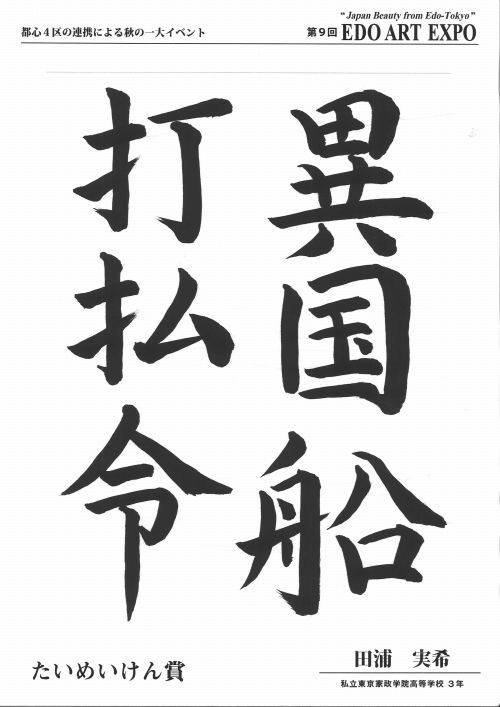 都心４区の連携による秋の一大イベント
"Japan Beauty from Edo-Tokyo"
第９回 EDO ART EXPO
異国船
打払令
たいめいけん賞
田浦　実希
私立東京家政学院高等学校 ３年